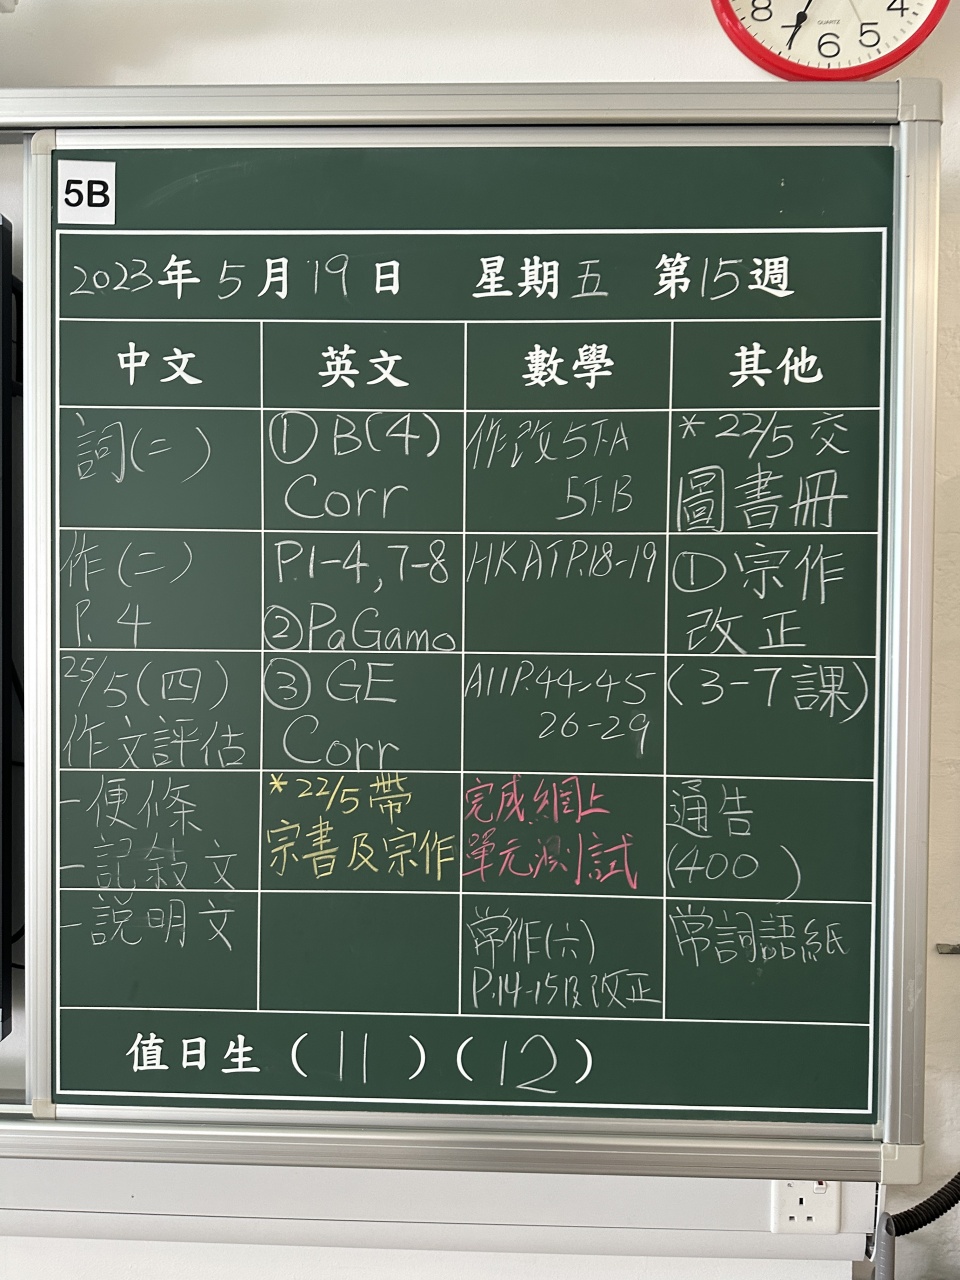 8 7 6 5 4
QUARTZ
5B
2023年5月19日 星期五 第15週
中文 英文 數學 其他
詞(二)
作(二)
P. 4
25/5(四)
作文評估
-便條
-記敍文
-説明文
①B(4)
Corr
P.1-4,7-8
②PaGamo
③GE
Corr
*22/5帶
宗書及宗作
作改5T.A
5T.B
HKAT P.18-19
A11 P.44-45
26-29
完成網上
單元測試
常作(六)
P.14-15及改正
*22/5交
圖書冊
①宗作
改正
(3-7課)
通告
(400 )
常詞語紙
值日生(11)(12)